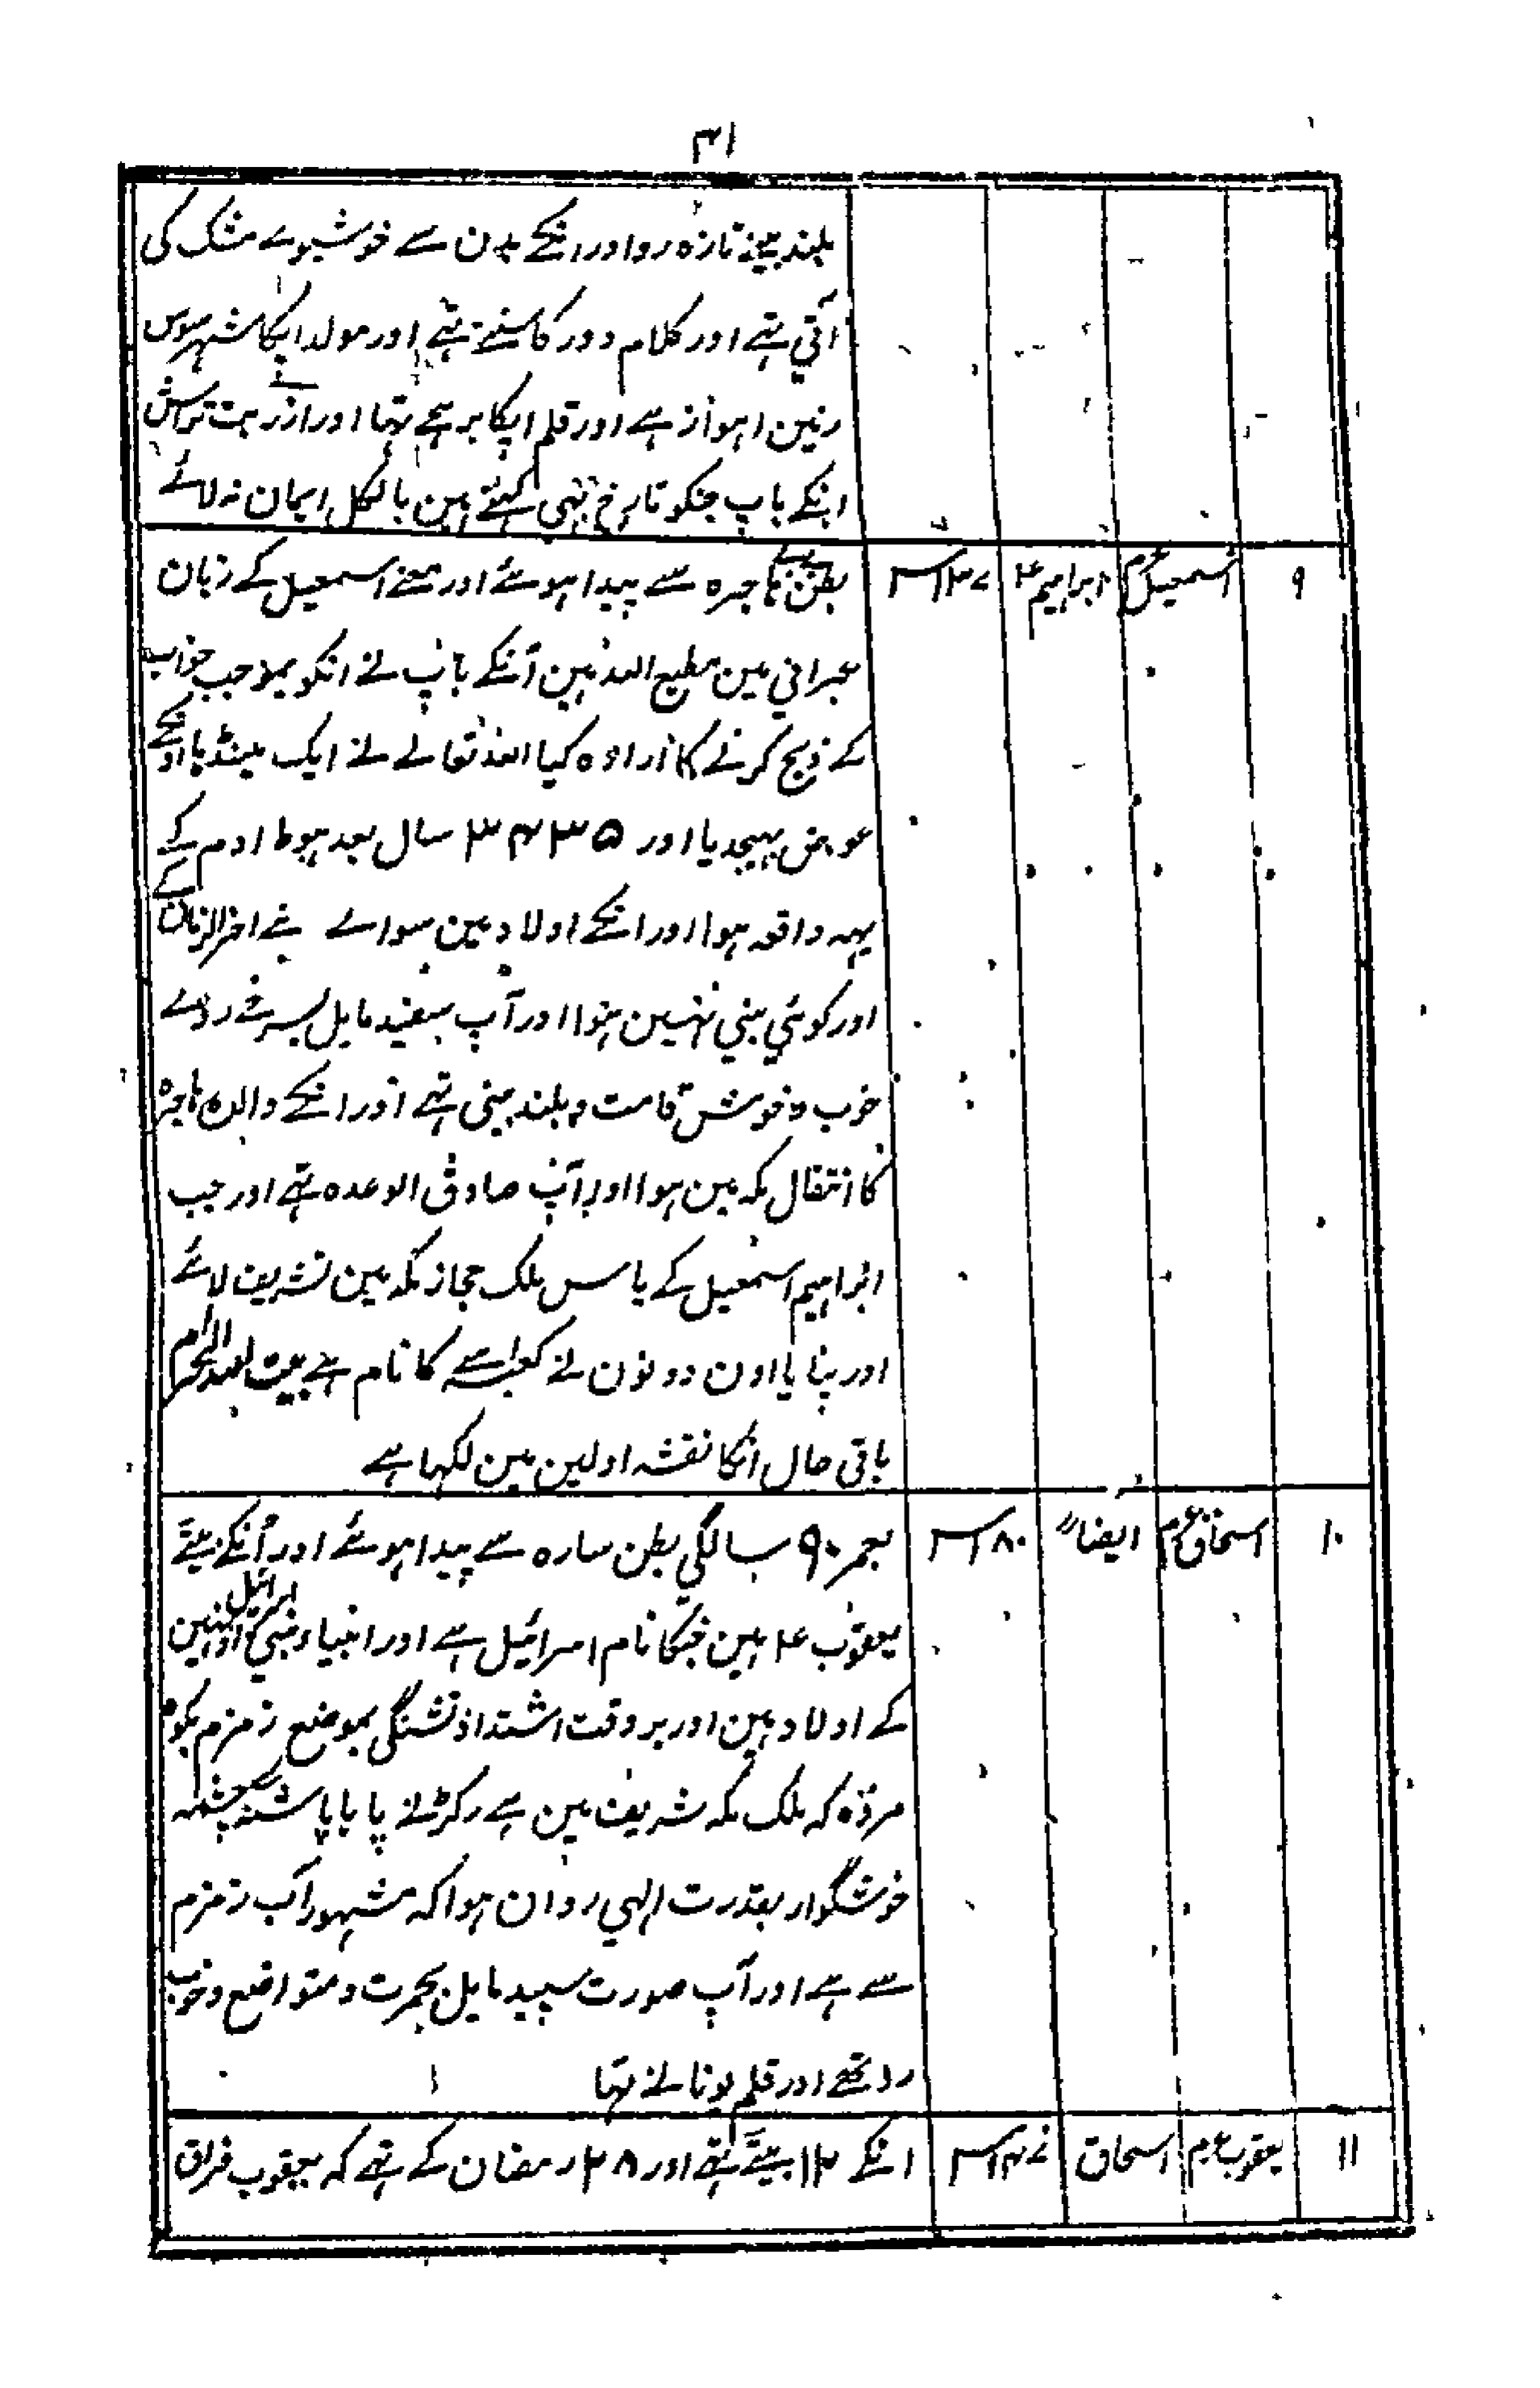 ۴۱
بلند بینے تازہ رو اور انکے بدن سے خوشبوے مشک کی
آتی تہے اور کلام دور کا سنتے تہے اور مولد ایکا شہر سوس
زمین اہواز ہے اور قلم ایکا برہجے تہا اور ازر بت تراش
انکے باپ جنکو تارخ بہی کہتے ہین بالکل ایمان نہ لائے
۹ اسمعیل عم ابراہیم ۴ بطن ہاجرہ سے پیدا ہوئے اور معنے اسمعیل کے زبان
عبرانی مین مطیع اللہ ہین انکے باپ نے انکو بموجب خواب
کے ذبح کرنے کا ارادہ کیا اللہ تعالے نے ایک مینڈہا اونکے
عوض بہیجدیا اور ۳۴۳۵ سال بعد ہبوط ادم کے
یہہ واقعہ ہوا اور انکے اولاد مین سواے نبے اخر الزمان کے
اور کوئی نبی نہین ہوا اور آپ سفید مایل بسرخے روے
خوب و خوش قامت و بلند بینی تہے اور انکے والدہ ہاجرہ
کا انتقال مکہ مین ہوا اور آپ صادق الوعدہ تہے اور جب
ابراہیم اسمعیل کے پاس ملک حجاز مکہ مین تشریف لائے
اور بنایا اون دونون نے کعبہ اسے کا نام ہے بیت اللہ الحرام
باقی حال انکا نقشہ اولین مین لکہا ہے
۱۰ اسحاق عم ایضاً ۳۱۸۰ بعمر ۹۰ سالگی بطن سارہ سے پیدا ہوئے اور انکے بیٹے
یعقوب ۴ ہین جنکا نام اسرائیل ہے اور انبیاء بنی اسرائیل اونہین
کے اولاد ہین اور بر وقت اشتداد تشنگی بموضع زمزم بکوہ
مروہ کہ ملک مکہ شریف مین ہے رکڑنے پا یا پاشنہ سے چشمہ
خوشگوار بقدرت الہی روان ہوا کہ مشہور آب زمزم
سے ہے اور آپ صورت سپید مایل بحمرت و متواضع و خوب
رو تہے اور قلم یونانے تہا
۱۱ یعقوب عم اسحاق انکے ۱۲ بیٹے تہے اور ۲۸ رمضان کے تہے کہ یعقوب فراق